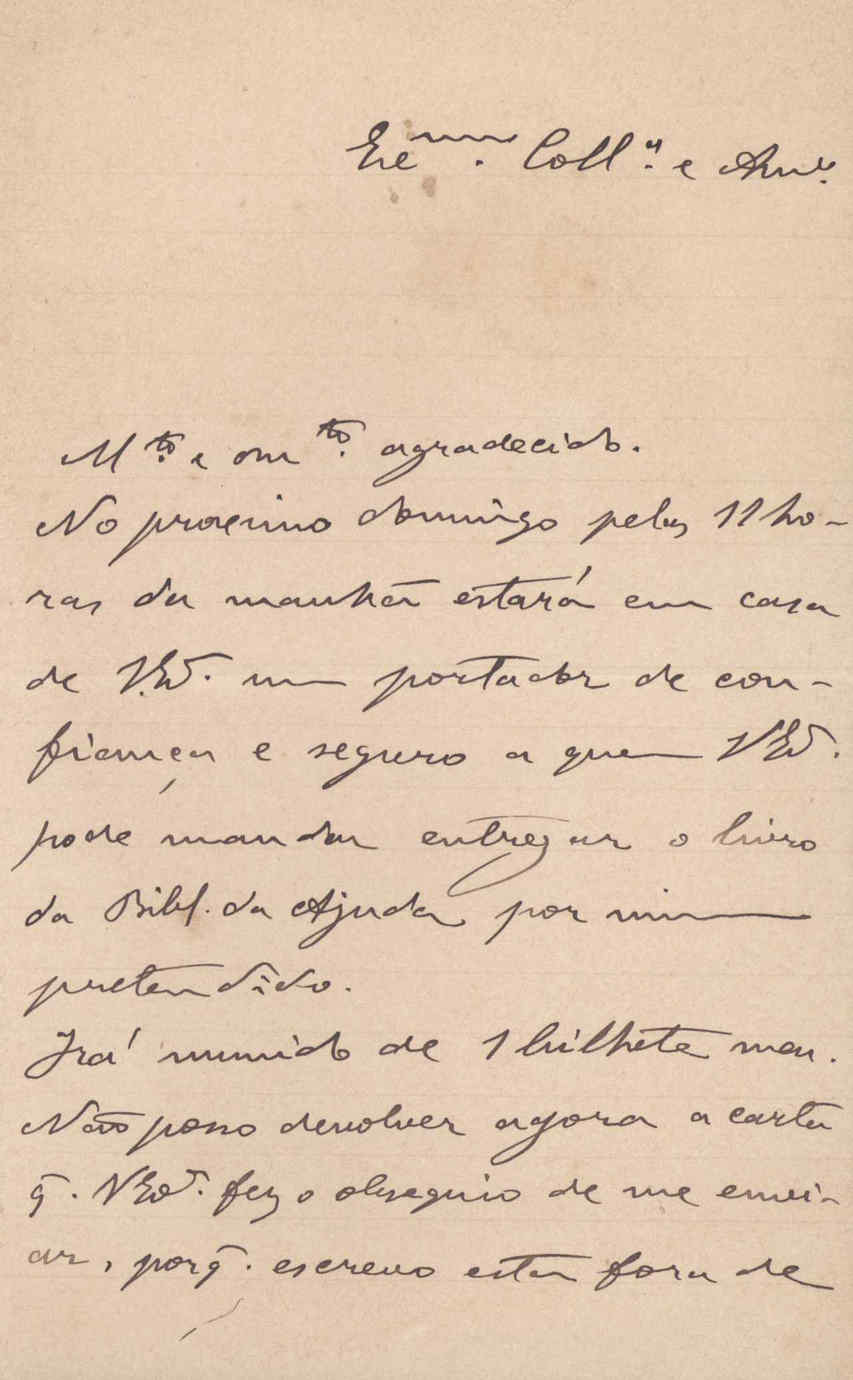 Exᵐᵒ. Collᵃ. e Amᵒ.
Mᵗᵒ. e mᵗᵒ. agradecido.
No proximo domingo pelas 11 ho-
ras da manhã estará em casa
de V. Exª. um portador de con-
fiança e seguro a quem V Exª.
pode mandar entregar o livro
da Bibl. da Ajuda, por mim
pretendido.
Irá munido de 1 bilhete meu.
Não posso devolver agora a carta
q̃. V Exª. fez o obsequio de me envi-
ar, porq̃. escrevo esta fora de